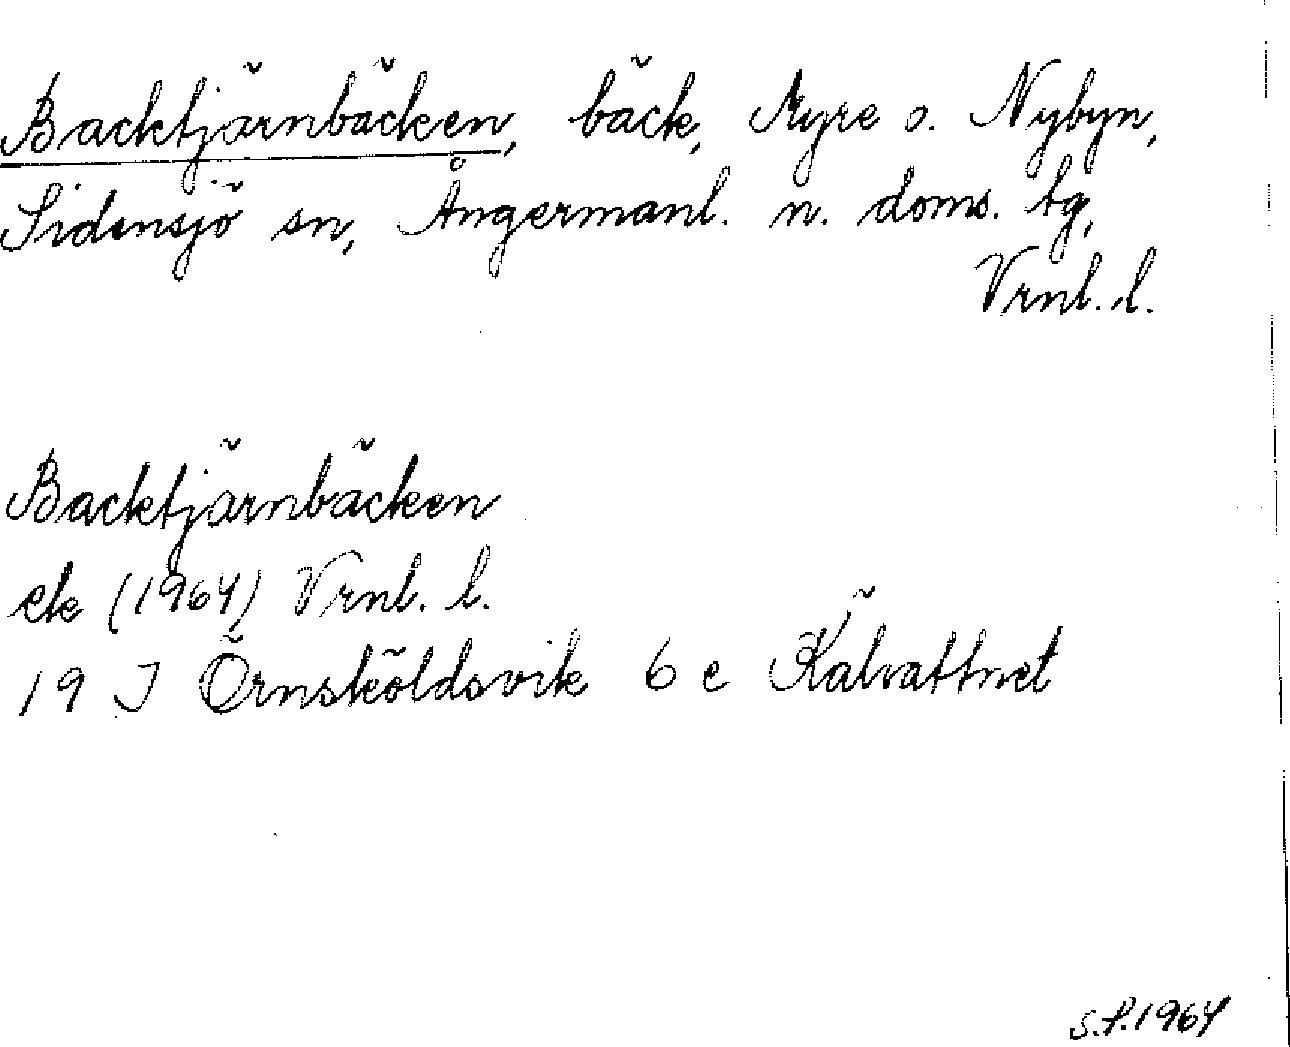 Backtjärnbäcken, bäck, Myre o. Nybyn,
Sidensjö sn, Ångermanl. n. doms. tg,
Vrnl. l.
Backtjärnbäcken
ek (1964) Vrnl. l.
19 J Örnsköldsvik 6 e Kälvattnet
S.P.1964